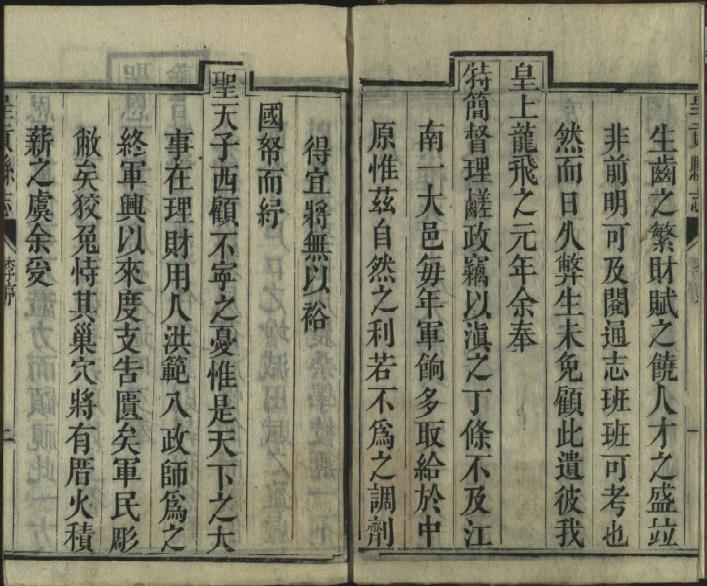 生齒之繁財賦之饒人才之盛竝
非前明可及閱通志班班可考也
然而日久弊生未免顧此遺彼我
皇上龍飛之元年余奉
特簡督理鹺政竊以滇之丁條不及江
南一大邑每年軍餉多取給於中
原惟茲自然之利若不爲之調劑
得宜將無以裕
國帑而紓
聖天子西顧不寧之憂惟是天下之大
事在理財用人洪範八政師爲之
終軍興以來度支吿匱矣軍民彫
敝矣狡兔恃其巢穴將有厝火積
薪之虞余受
呈貢縣志
李序